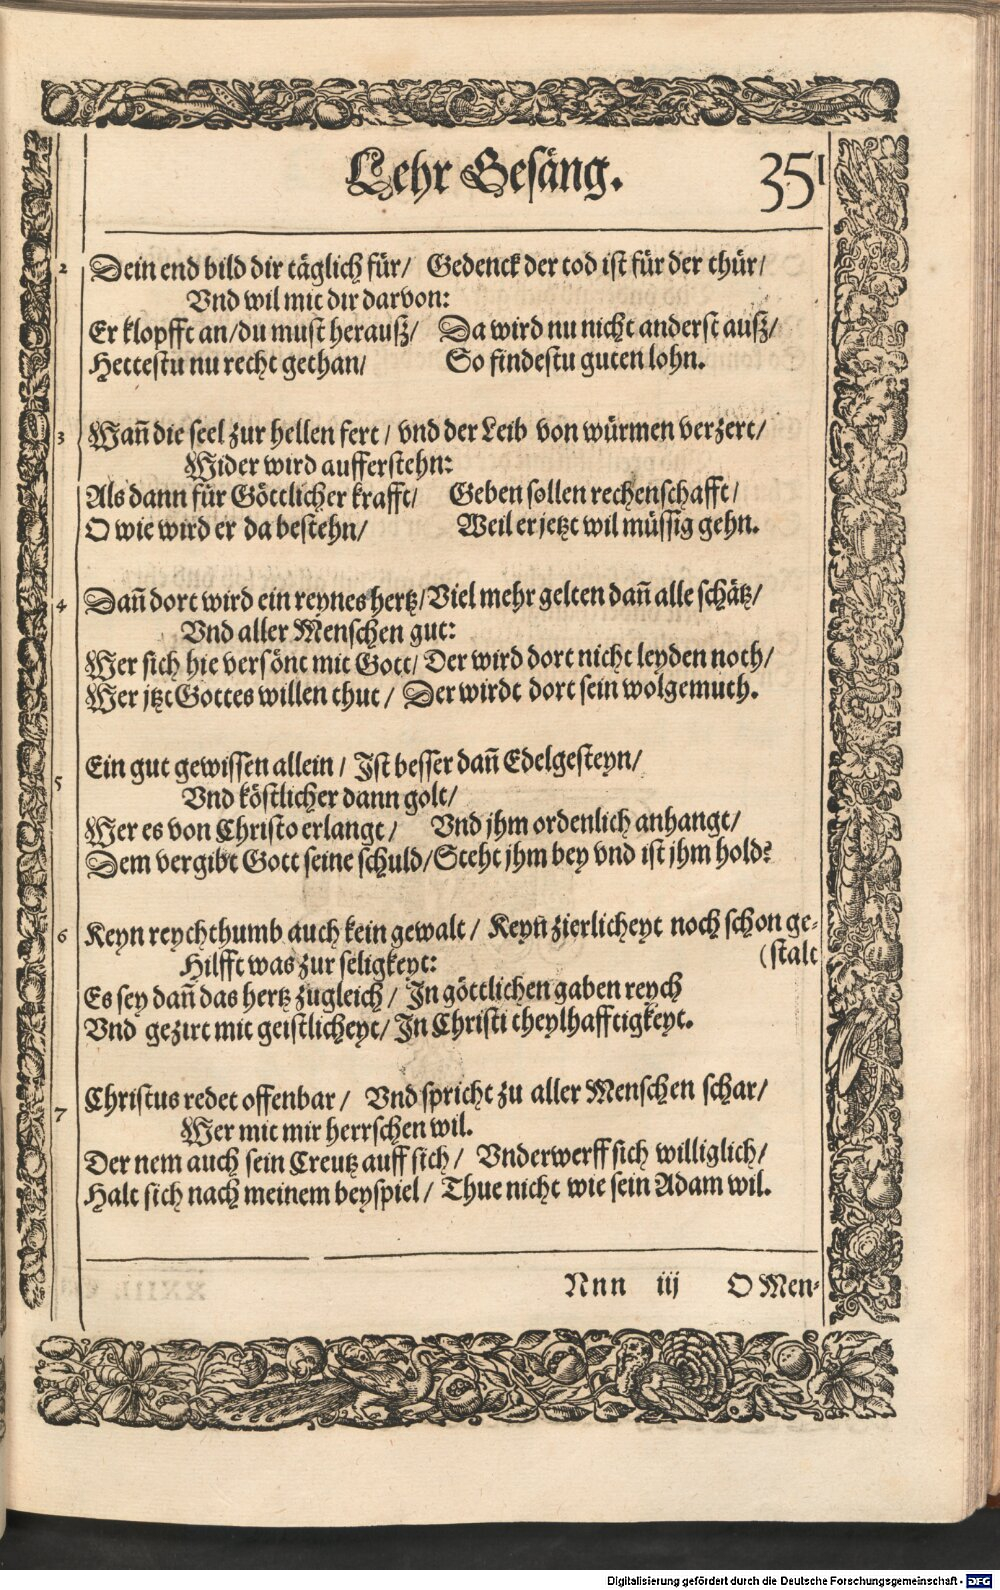 Lehr Gesäng. 351
2 Dein end bild dir täglich für/ Gedenck der tod ist für der thür/
Vnd wil mit dir darvon:
Er klopfft an/du must herauß/ Da wird nu nicht anderst auß/
Hettestu nu recht gethan/ So findestu guten lohn.
3 Wañ die seel zur hellen fert / vnd der Leib von würmen verzert/
Wider wird aufferstehn:
Als dann für Göttlicher krafft/ Geben sollen rechenschafft/
O wie wird er da bestehn/ Weil er jetzt wil müssig gehn.
4 Dañ dort wird ein reynes hertz/Viel mehr gelten dañ alle schätz/
Vnd aller Menschen gut:
Wer sich hie versönt mit Gott/ Der wird dort nicht leyden noth/
Wer jtzt Gottes willen thut / Der wirdt dort sein wolgemuth.
5 Ein gut gewissen allein / Ist besser dañ Edelgesteyn/
Vnd köstlicher dann golt/
Wer es von Christo erlangt / Vnd jhm ordenlich anhangt/
Dem vergibt Gott seine schuld/Steht jhm bey vnd ist jhm hold:
6 Keyn reychthumb auch kein gewalt / Keyñ zierlicheyt noch schon ge-
(stalt
Hilfft was zur seligkeyt:
Es sey dañ das hertz zugleich / In göttlichen gaben reych
Vnd gezirt mit geistlicheyt/ In Christi theylhafftigkeyt.
7 Christus redet offenbar / Vnd spricht zu aller Menschen schar/
Wer mit mir herrschen wil.
Der nem auch sein Creutz auff sich / Vnderwerff sich williglich/
Halt sich nach meinem beyspiel / Thue nicht wie sein Adam wil.
Nnn iij O Men-
Digitalisierung gefördert durch die Deutsche Forschungsgemeinschaft - DFG